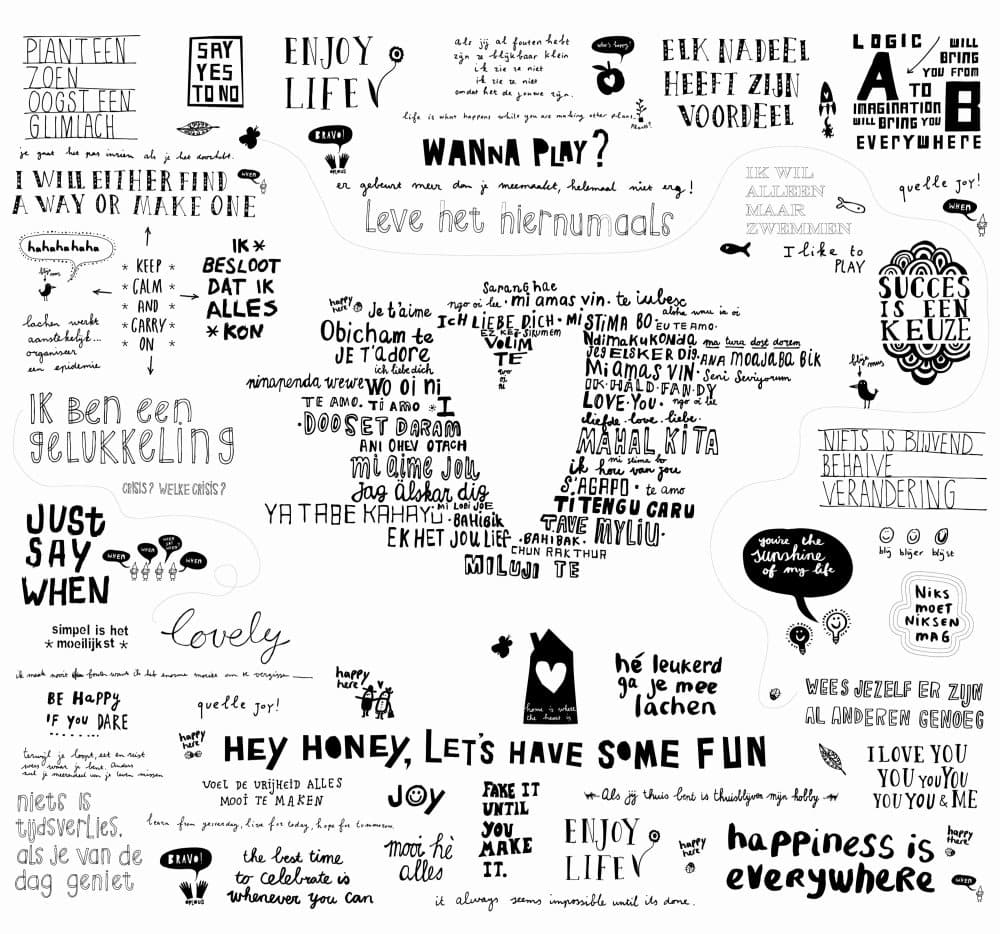 PLANT EEN
ZOEN
OOGST EEN
GLIMLACH
SAY
YES
TO NO
ENJOY
LIFE
als jij al fouten hebt
zijn ze blijkbaar klein
ik zie ze niet
ik zie ze niet
omdat het de jouwe zijn.
who's happy?
ELK NADEEL
HEEFT ZIJN
VOORDEEL
LOGIC
WILL
BRING
YOU FROM
A TO B
IMAGINATION
WILL BRING YOU
EVERYWHERE
life is what happens while you are making other plans.
je gaat het pas inzien als je het doorhebt.
BRAVO!
APPLAUS
WANNA PLAY?
I WILL EITHER FIND
A WAY OR MAKE ONE
WHEN
er gebeurt meer dan je meemaakt, helemaal niet erg!
Leve het hiernumaals
IK WIL
ALLEEN
MAAR
ZWEMMEN
quelle joy!
WHEN
I like to
PLAY
hahahahaha
* KEEP *
* CALM *
* AND *
* CARRY *
* ON *
IK *
BESLOOT
DAT IK
ALLES
* KON
SUCCES
IS EEN
KEUZE
lachen werkt
aanstekelijk...
organiseer
een epidemie
Saranghae
happy
here
Je t'aime
ngo oi lee · mi amas vin · te iubesc
Obicham te
ICH LIEBE DICH · MISTIMA BO · EU TE AMO ·
JE T'ADORE
VOLIM
TE
Ndimakukonda
ich liebe dich
Jeg ELSKER DIG · ANA MOAJABA BIK
ninapenda wewe
wo oi ni
wo
oi
ni
Mi AMAS VIN · Seni Seviyorum
TE AMO. TI AMO * I
IK · HALD · FAN · DY
LOVE · YOU · ngo oi lee
· DOOSET DARAM
liefde · love · liebe.
ANI OHEV OTACH
MAHAL KITA
mi aime jou
ik hou van jou
Jag Älskar dig
S'AGAPO · te amo
YA TABE KAHAYU · MI LOBI JOE
· BAHIBIK
TI TENGU CARU
EK HET JOU LIEF · BAHIBAK ·
TAVE MYLIU ·
CHUN RAK THUR
MILUJI TE
IK BEN EEN
GELUKKELING
CRISIS? WELKE CRISIS?
NIETS IS BLIJVEND
BEHALVE
VERANDERING
JUST
SAY
WHEN
WHEN
WHEN
WHEN
you're the
sunshine
of my life
blij blijer blijst
NIKS
MOET
NIKSEN
MAG
simpel is het
* moeilijkst *
lovely
home is where
the heart is
hé leukerd
ga je mee
lachen
WEES JEZELF ER ZIJN
AL ANDEREN GENOEG
BE HAPPY
IF YOU DARE
quelle joy!
happy
here!
happy
here
HEY HONEY, LET'S HAVE SOME FUN
I LOVE YOU
YOU YOU YOU
YOU YOU & ME
VOEL DE VRIJHEID ALLES
MOOI TE MAKEN
JOY
FAKE IT
UNTIL
YOU
MAKE
IT.
Als jij thuis bent is thuisblijven mijn hobby
niets is
tijdsverlies.
als je van de
dag geniet
learn from yesterday, live for today, hope for tomorrow.
BRAVO!
APPLAUS
the best time
to celebrate is
whenever you can
mooi hè
alles
ENJOY
LIFE
happy
here
happiness is
everywhere
happy
there!
WHEN
it always seems impossible until its done.